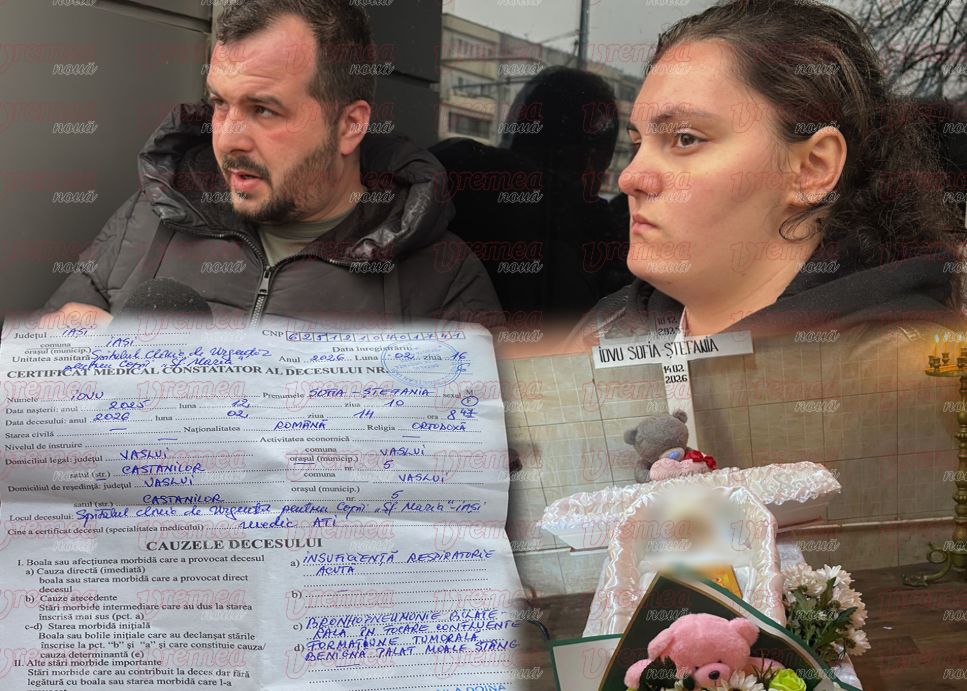 Vremea nouă
Județul IAȘI
comuna
orașul (municip.) IAȘI
CNP 6251210401741
Data înregistrării
Unitatea sanitară Spitalul Clinic de Urgență Anul 2026 Luna 02 ziua 16
pentru Copii "Sf Maria"
CERTIFICAT MEDICAL CONSTATATOR AL DECESULUI NR.
Numele IOVU Prenumele SOFIA - ȘTEFANIA sexul M
F
Data nașterii: anul 2025 luna 12 ziua 10
Data decesului: anul 2026 luna 02 ziua 14 ora 8 47
Starea civilă — Naționalitatea ROMÂNĂ Religia ORTODOXĂ
Nivelul de instruire — Activitatea economică —
Domiciliul legal: județul VASLUI comuna
orașul (municip.) VASLUI
satul (str.) CASTANILOR nr. 5
Domiciliul de reședință: județul VASLUI comuna
orașul (municip.) VASLUI
satul (str.) CASTANILOR nr. 5
Locul decesului: Spitalul Clinic de Urgență pentru Copii "Sf Maria" - Iași
Cine a certificat decesul (specialitatea medicului) medic ATI
CAUZELE DECESULUI
I. Boala sau afecțiunea morbidă care a provocat decesul
a) Cauza directă (imediată)
boala sau starea morbidă care a provocat direct
decesul
b) Cauze atecedente
Stări morbide intermediare care au dus la starea
înscrisă mai sus (pct. a)
c-d) Starea morbidă inițială
Boala sau bolile inițiale care au declanșat stările
înscrise la pct. "b" și "a" și care constituie cauza/
cauza determinantă (e)
II. Alte stări morbide importante
Stări morbide care au contribuit la deces dar fără
legătură cu boala sau starea morbidă care l-a
a) INSUFICIENȚĂ RESPIRATORIE
ACUTĂ
b)
c) BRONHOPNEUMONIE BILATE-
RALĂ ÎN FOCARE CONFLUENTE
d) FORMAȚIUNE TUMORALĂ
BENIGNĂ PALAT MOALE STÂNG
IOVU SOFIA ȘTEFANIA
14.02.
2026